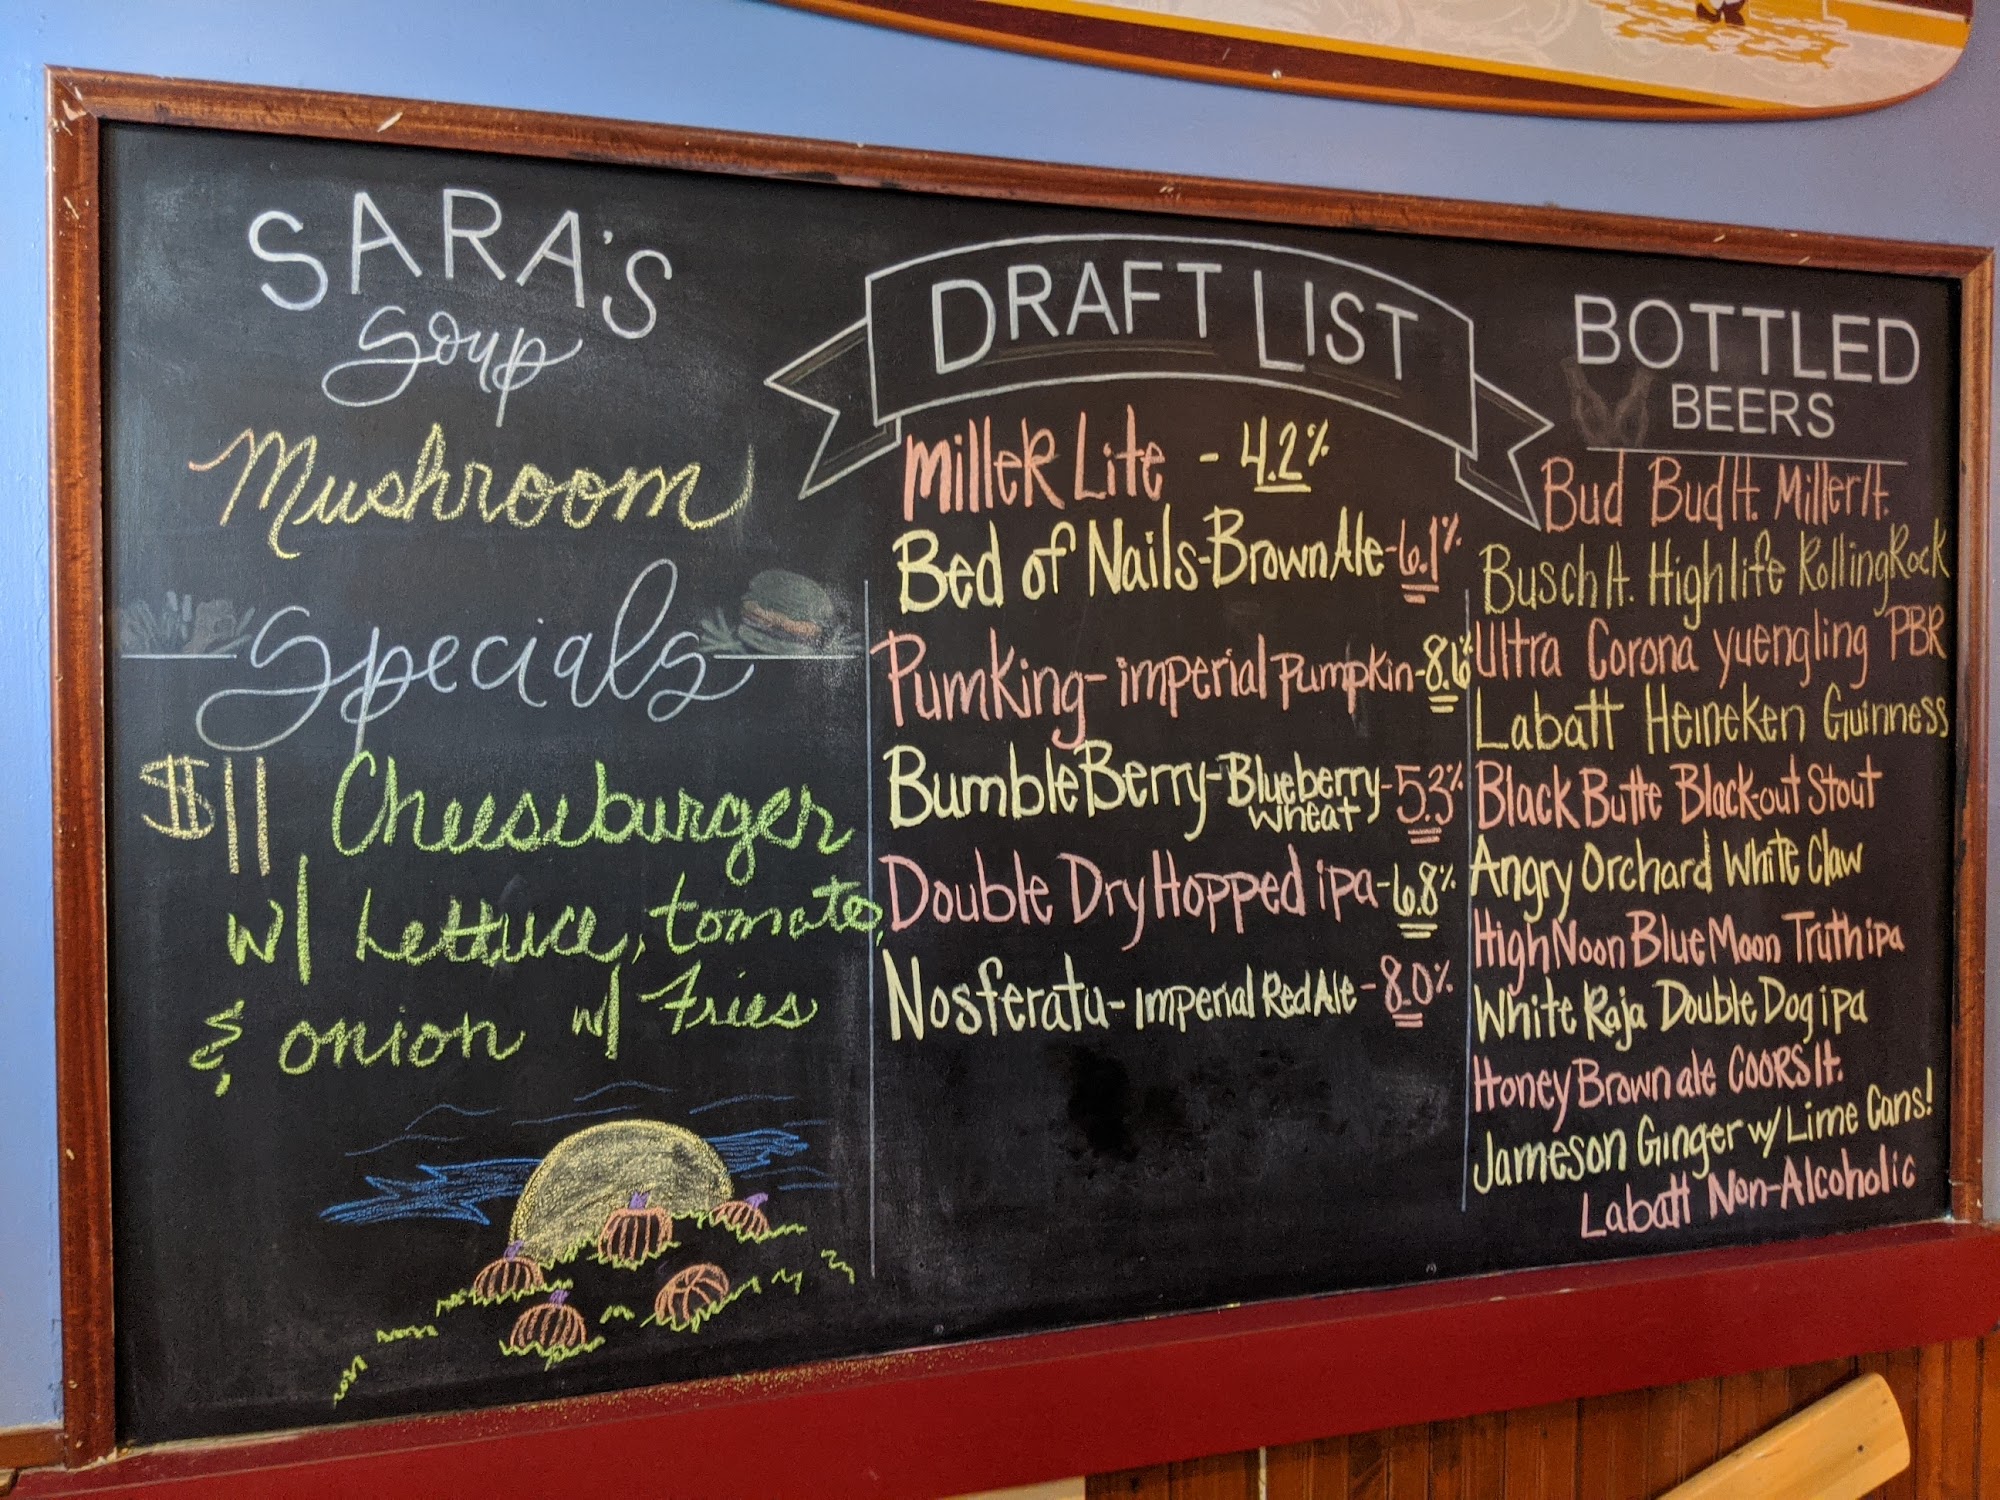 SARA'S
Soup
Mushroom
Specials
$11 Cheeseburger
w/ Lettuce, tomato,
& onion w/ Fries
DRAFT LIST
Miller Lite - 4.2%
Bed of Nails-Brown Ale-6.1%
Pumking-imperial Pumpkin-8.6%
BumbleBerry-Blueberry wheat-5.3%
Double Dry Hopped ipa-6.8%
Nosferatu-Imperial Red Ale-8.0%
BOTTLED
BEERS
Bud Bud lt. Miller lt.
Busch lt. High life Rolling Rock
Ultra Corona yuengling PBR
Labatt Heineken Guinness
Black Butte Black-out Stout
Angry Orchard White Claw
High Noon Blue Moon Truth ipa
White Raja Double Dog ipa
Honey Brown ale COORS lt.
Jameson Ginger w/ Lime Cans!
Labatt Non-Alcoholic